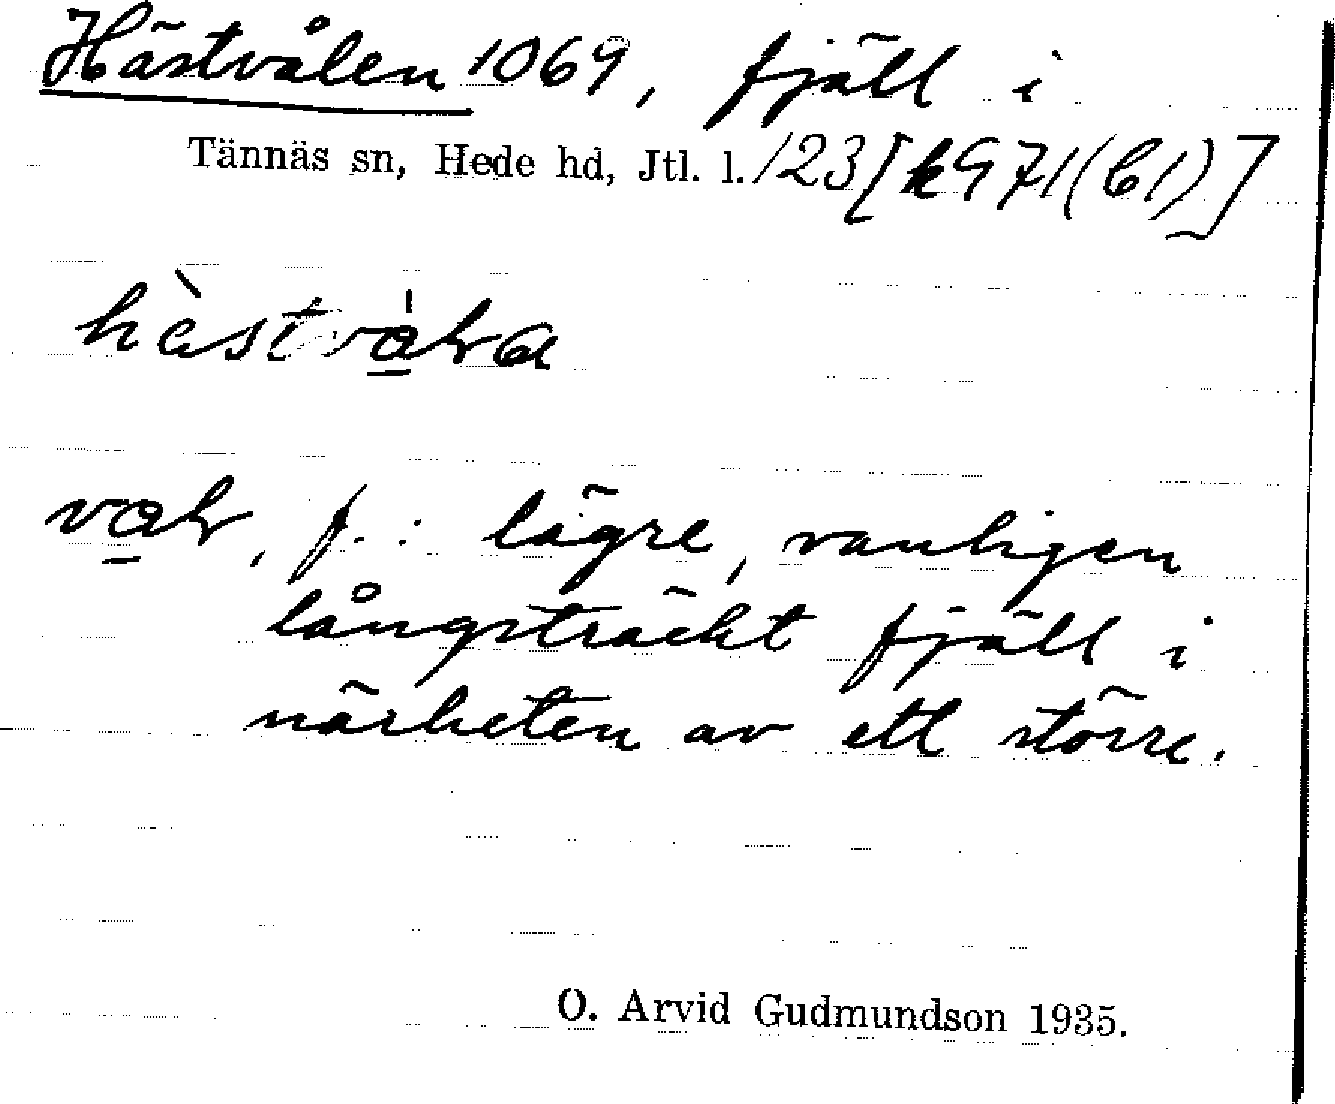 Hästvålen 1069, fjäll i
Tännäs sn, Hede hd, Jtl. l. /23 [k971(61)]
lägre, vanligen
långsträckt fjäll i
närheten av ett större.
O. Arvid Gudmundson 1935.